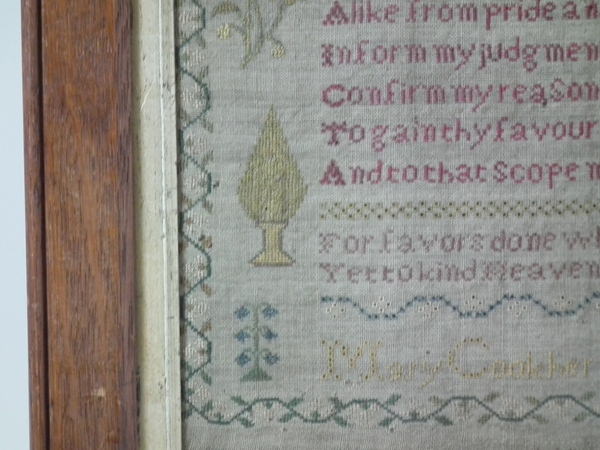 Alike from pride an
Inform my judgmen
Confirm my reason
To gain thy favour
And to that Scope m
For favors done wh
Yet to kind Heaven
Mary